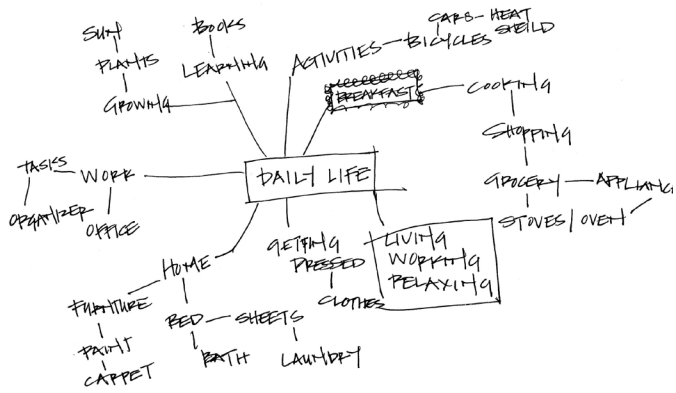 SUN
PLANTS
GROWING
BOOKS
LEARNING
ACTIVITIES
CARS - HEAT
SHEILD
BICYCLES
BREAKFAST
COOKING
SHOPPING
GROCERY
APPLIANC
STOVES / OVEN
TASKS
WORK
ORGANIZER
OFFICE
DAILY LIFE
HOME
FURNITURE
PAINT
CARPET
BED
SHEETS
BATH
LAUNDRY
GETTING
DRESSED
CLOTHES
LIVING
WORKING
RELAXING